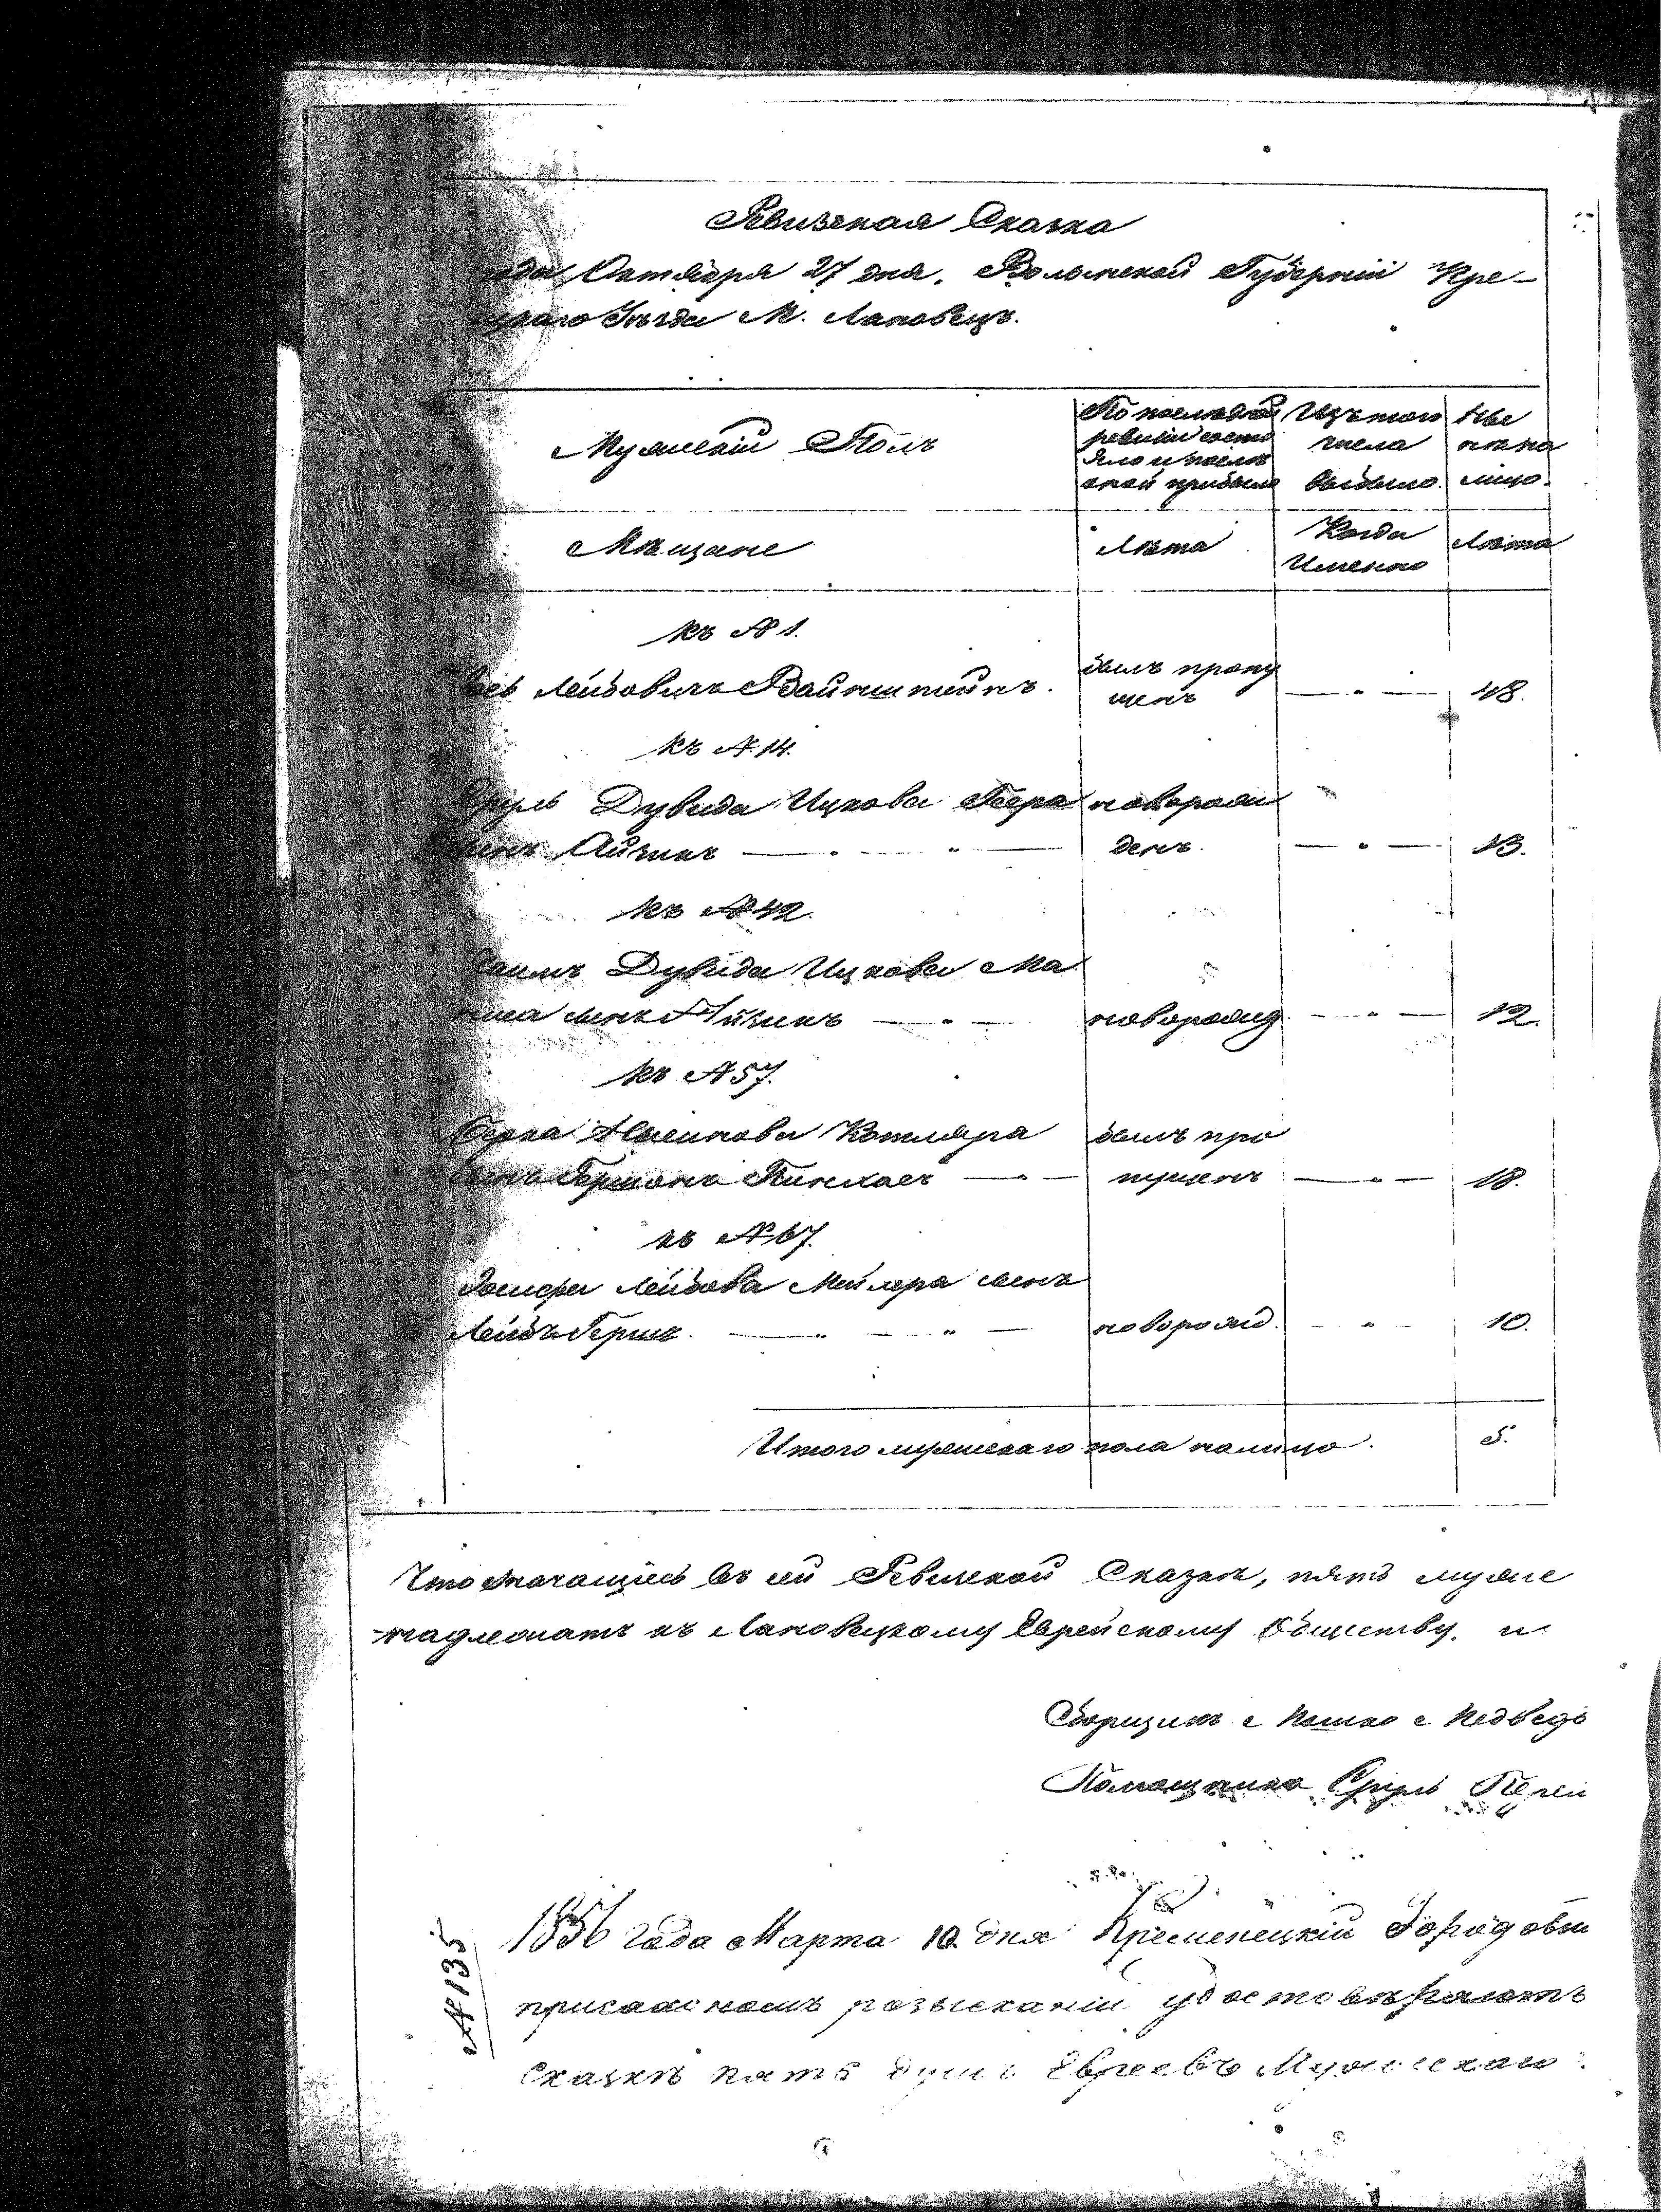 Ревизская Сказка
года Октября 27 дня. Волынской Губерніи Кре-
цкаго Уѣзда М. Лановецъ.
Мужескій Полъ
По послѣдней ревизіи состояло и послѣ оной прибыло
Изъ того числа выбыло
Ны нѣ на лицо.
Мѣщане
Лѣта
Когда Именно
Лѣта
къ № 1.
Лейбовичъ Вайнштейнъ. былъ пропу щенъ — " — 48.
къ № 14.
Сруль Дувида Ицкова новорож
сынъ Айзикъ — " — " — денъ. — " — 13.
къ № 42.
Хаимъ Дувида Ицкова Ма
сынъ Айзикъ — " — новорожд. — " — 12.
къ № 57.
Берка Котляра былъ про
сынъ Гершонъ Пинхасъ — " — пущенъ — " — 18.
къ № 67.
Іосифа Лейбова Мейлера сынъ
Лейбъ Гершъ. — " — " — новорожд. — " — 10.
Итого мужескаго пола налицо. 5.
Что значащіесь въ сей Ревизской Сказкѣ, пять муже
надлежатъ къ Лановецкому Еврейскому Обществу. и
Сборщикъ с Мошко с Медведь
Помощника Сруль
№ 135
1856 года Марта 10. дня Кременецкій Городовы
присяжномъ розысканіи удостовѣряютъ
Сказкѣ пять душъ Евреевъ Мужескаго